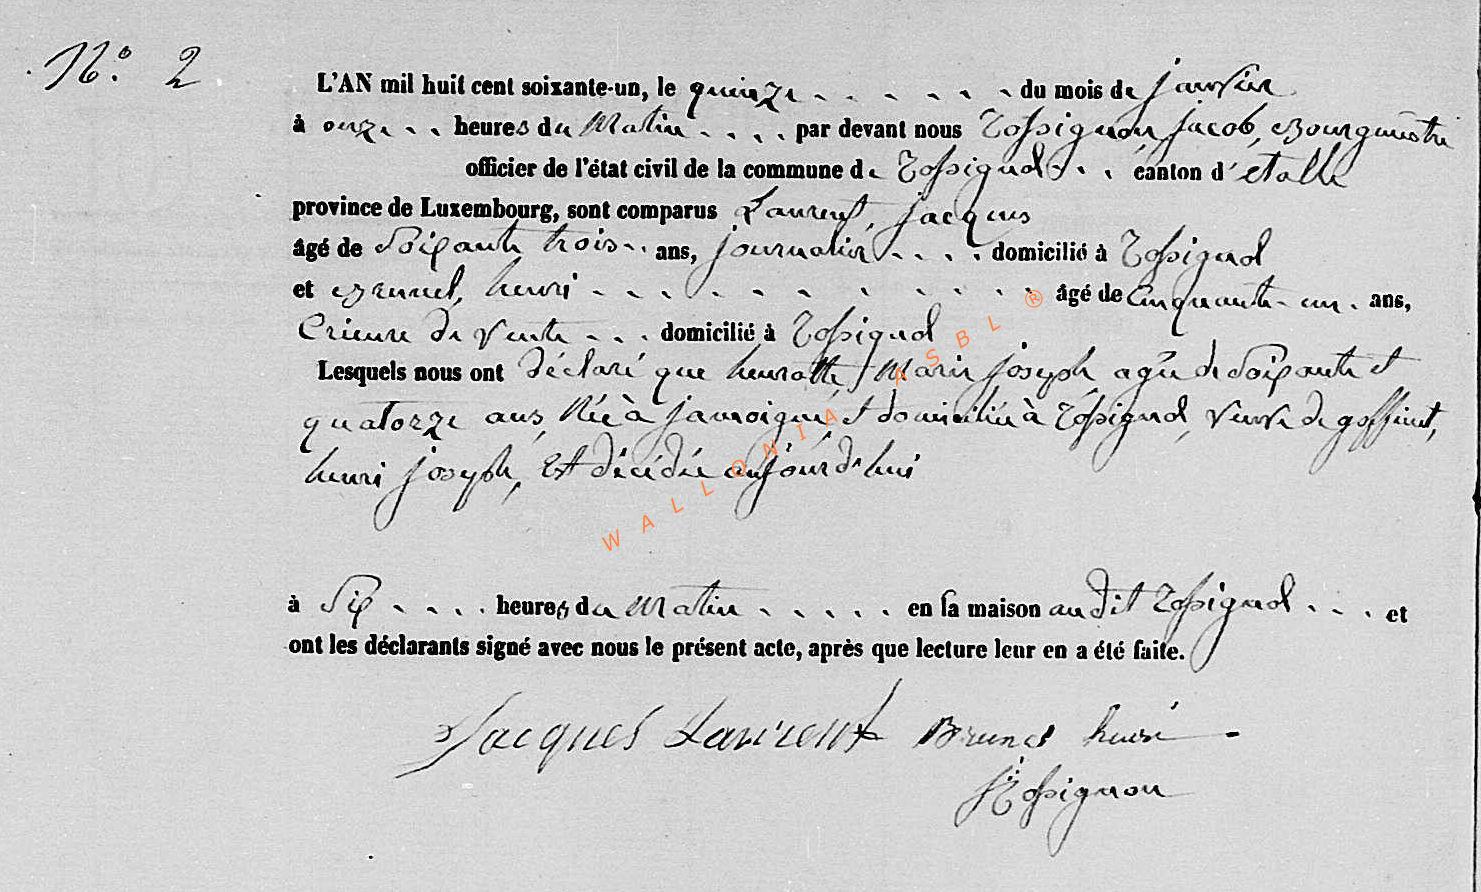 N.º 2
L'AN mil huit cent soixante-un, le quinze - - - - - - du mois de janvier
à onze - - heures du Matin - - - - par devant nous Rossignon, jacob, Bourgmestre
officier de l'état civil de la commune de Rossignol - - - canton d'étalle
province de Luxembourg, sont comparus Laurent, jacques
âgé de Soixante trois - - ans, journalier - - - - domicilié à Rossignol
et Brunel, henri - - - - - - - - - - - - âgé de Cinquante-un - ans,
Crieur de Vente - - - domicilié à Rossignol
Lesquels nous ont déclaré que henrotte, Marie joseph agée de Soixante et
quatorze ans, Née à jamoigne, et domiciliée à Rossignol, Veuve de goffinet,
henri joseph, Est décédée aujourd'hui
à Six - - - - heures du Matin - - - - - en sa maison audit Rossignol - - - et
ont les déclarants signé avec nous le présent acte, après que lecture leur en a été faite.
Jacques Laurent Brunel henri -
Rossignon
WALLONIA ASBL ®